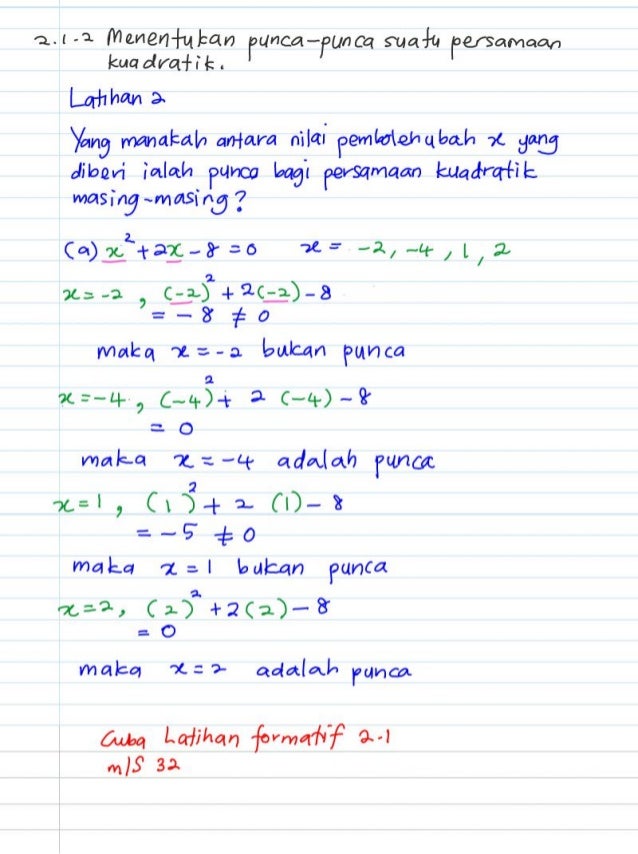 2.1.2 Menentukan punca-punca suatu persamaan
kuadratik.
Latihan 2
Yang manakah antara nilai pembolehubah x yang
diberi ialah punca bagi persamaan kuadratik
masing-masing?
(a) x² + 2x - 8 = 0 x = -2, -4, 1, 2
x = -2, (-2)² + 2(-2) - 8
= -8 ≠ 0
maka x = -2 bukan punca
x = -4, (-4)² + 2 (-4) - 8
= 0
maka x = -4 adalah punca
x = 1, (1)² + 2 (1) - 8
= -5 ≠ 0
maka x = 1 bukan punca
x = 2, (2)² + 2(2) - 8
= 0
maka x = 2 adalah punca
Cuba Latihan formatif 2.1
m/s 32